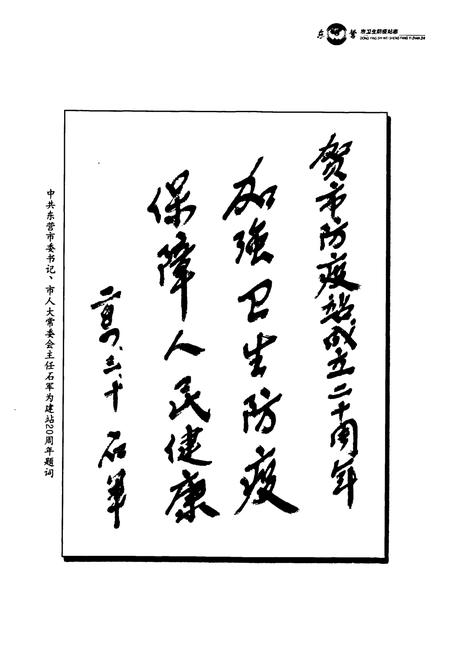 东营 市卫生防疫站志
DONG YING SHI WEI SHENG FANG YI ZHAN ZHI
贺市防疫站成立二十周年
加強卫生防疫
保障人民健康
三、十 石军
中共东营市委书记、市人大常委会主任石军为建站20周年题词